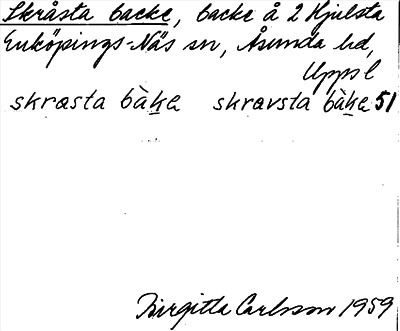 Skråsta backe, backe å 2 Hjulsta
Enköpings-Näs sn, Åsunda hd,
Uppsl
skrasta bàke skravsta bàke 51
Birgitta Carlsson 1959